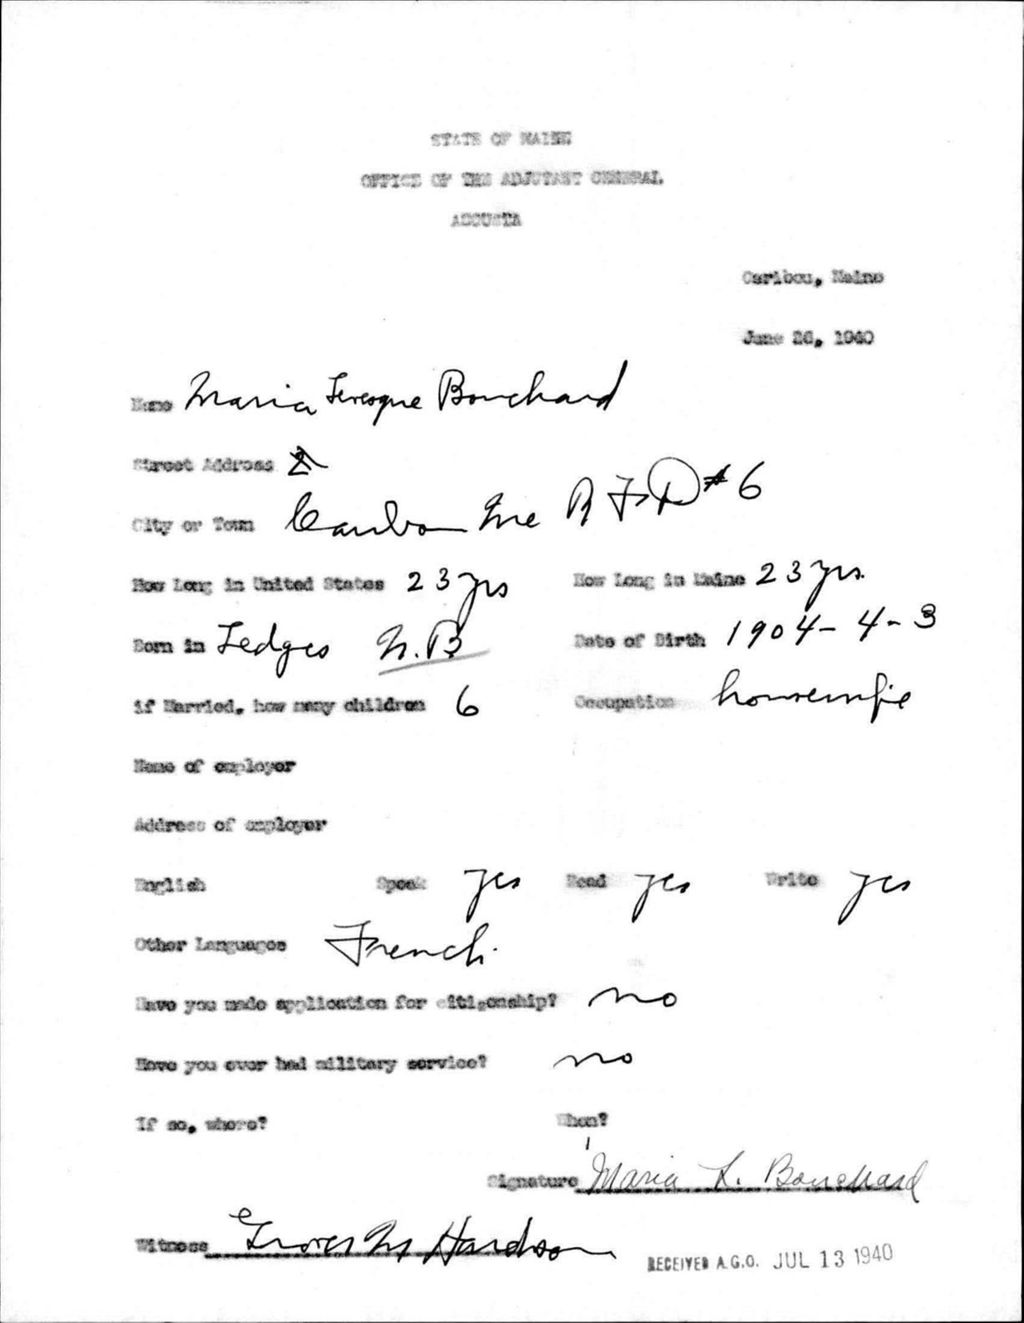 STATE OF MAINE
OFFICE OF THE ADJUTANT GENERAL
AUGUSTA
Caribou, Maine
June 26, 1940
Name Maria Bouchard
Street Address
City or Town Caribou Me R F D #6
How Long in United States 23 yrs How Long in Maine 23 yrs.
Born in Ledges N.B Date of Birth 1904-4-3
if Married, how many children 6 Occupation housewife
Name of employer
Address of employer
English Speak yes Read yes Write yes
Other Languages French.
Have you made application for citizenship? no
Have you ever had military service? no
If so, where? When?
Signature Maria L. Bouchard
Witness Grover M Hardison
RECEIVED A.G.O. JUL 13 1940